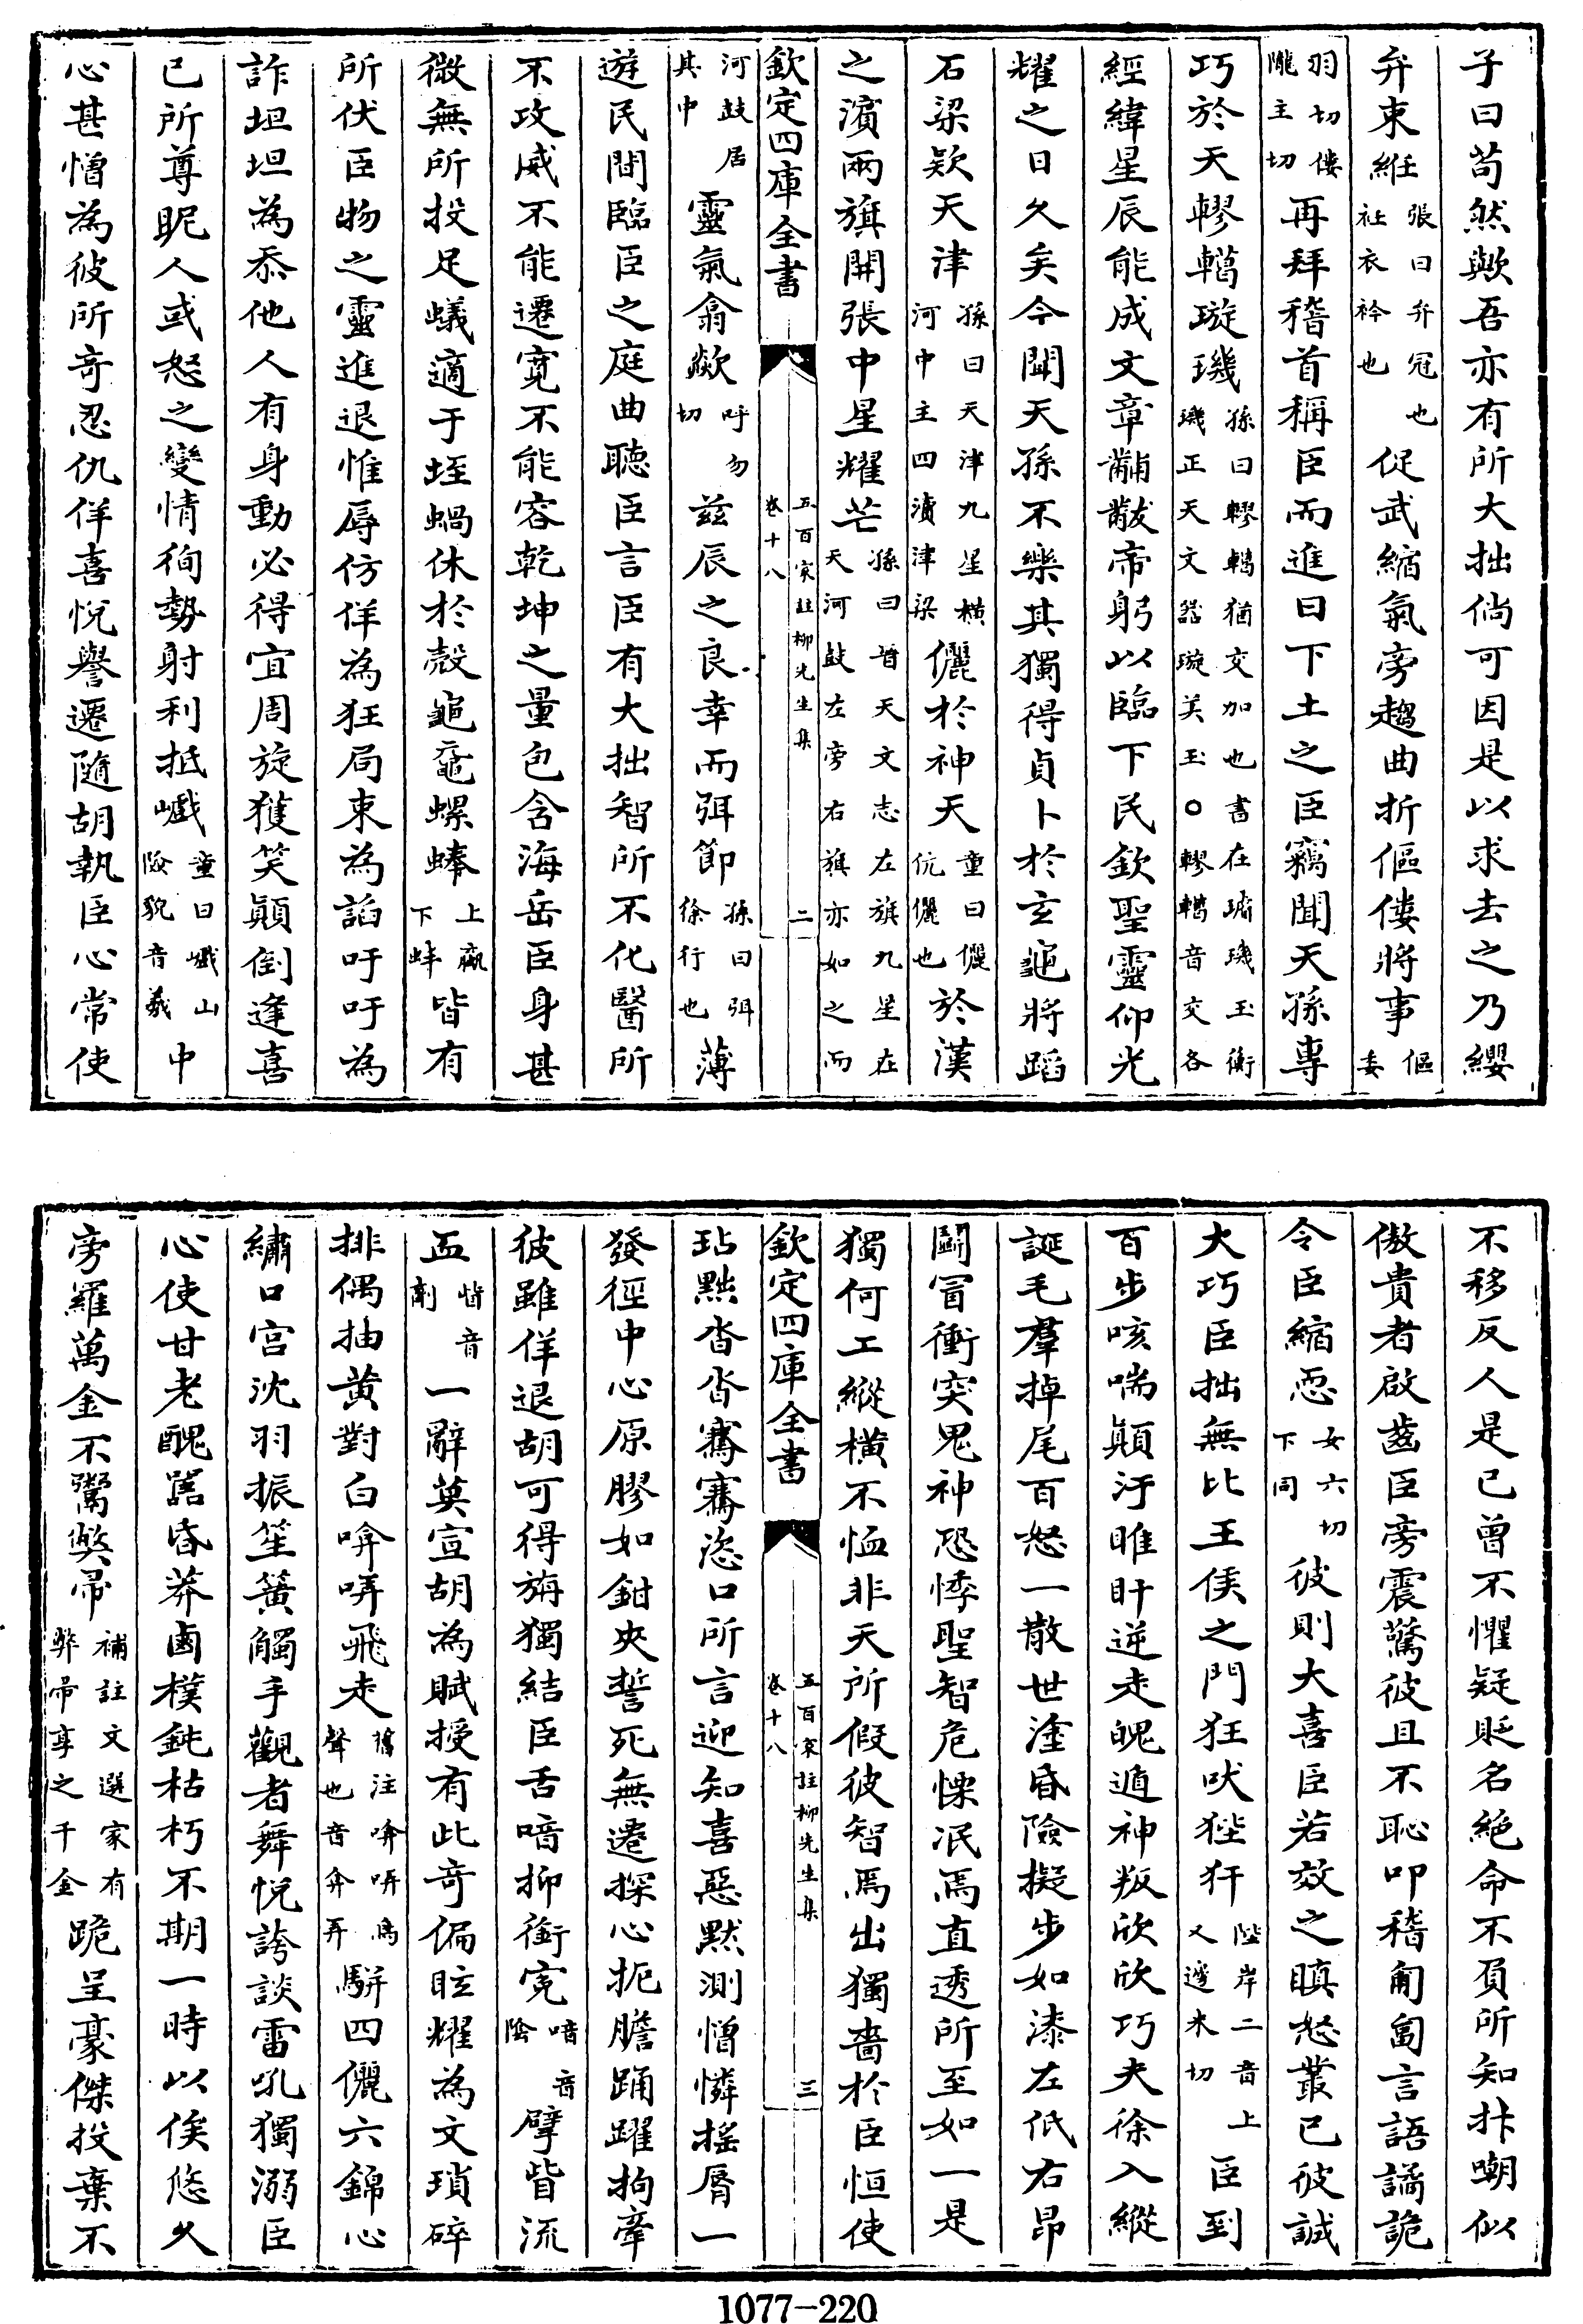 子曰苟然歟吾亦有所大拙倘可因是以求去之乃纓
弁束紝張曰弁冠也社衣衿也促武縮氣旁趨曲折傴僂將事傴委
羽切僂隴主切再拜稽首稱臣而進曰下土之臣竊聞天孫專
巧於天轇轕璇璣孫曰轇轕猶交加也書在璿璣玉衡璣正天文器璇美玉○轇轕音交各
經緯星辰能成文章黼黻帝躬以臨下民欽聖靈仰光
耀之日久矣今聞天孫不樂其獨得貞卜於玄龜將蹈
石梁欵天津孫曰天津九星橫河中主四瀆津梁儷於神夫童曰儷伉儷也於漢
之濱兩旗開張中星耀芒孫曰晉天文志左旗九星在天河鼓左旁右旗亦如之而
欽定四庫全書 卷十八 五百家註柳先生集 二
河鼓居其中靈氣翕歘呼勿切兹辰之良幸而弭節孫曰弭徐行也薄
遊民間臨臣之庭曲聽臣言臣有大拙智所不化醫所
不攻威不能遷寛不能容乾坤之量包含海岳臣身甚
微無所投足蟻適于垤蝸休於殼龜黿螺蜯上蠃下蚌皆有
所伏臣物之靈進退惟辱仿佯為狂局束為諂吁吁為
詐坦坦為忝他人有身動必得宜周旋獲笑顛倒逢喜
已所尊昵人或怒之變情徇勢射利抵巇童曰巇山險貌音羲中
心甚憎為彼所奇忍仇佯喜悅譽遷隨胡執臣心常使
不移反人是已曾不懼疑貶名絕命不負所知抃嘲似
傲貴者啟齒臣旁震驚彼且不恥叩稽匍匐言語譎詭
令臣縮恧女六切下同彼則大喜臣若效之瞋怒叢已彼誠
大巧臣拙無比王侯之門狂吠狴犴陛岸二音上又邊米切臣到
百步喉喘顛汗睢盱逆走魄遁神叛欣欣巧夫徐入縱
誕毛羣掉尾百怒一散世塗昏險擬步如漆左低右昂
鬭冒衝突鬼神恐悸聖智危慄泯焉直透所至如一是
獨何工縱橫不恤非天所假彼智焉出獨嗇於臣恒使
欽定四庫全書 卷十八 五百家註柳先生集 三
玷黜沓沓騫騫恣口所言迎知喜惡默測憎憐搖脣一
發徑中心原膠如鉗夾誓死無遷探心扼膽踊躍拘牽
彼雖佯退胡可得旃獨結臣舌喑抑銜寃喑音陰擘眥流
血眥音劑一辭莫宣胡為賦授有此奇偏眩耀為文瑣碎
排偶抽黃對白啽哢飛走舊注啽哢鳥聲也音弇弄駢四儷六錦心
繡口宮沈羽振笙簧觸手觀者舞悅誇談雷吼獨溺臣
心使甘老醜嚚昏莽鹵樸鈍枯朽不期一時以俟悠久
旁羅萬金不鬻弊帚補註文選家有弊帚享之千金跪呈豪傑投棄不
1077-220